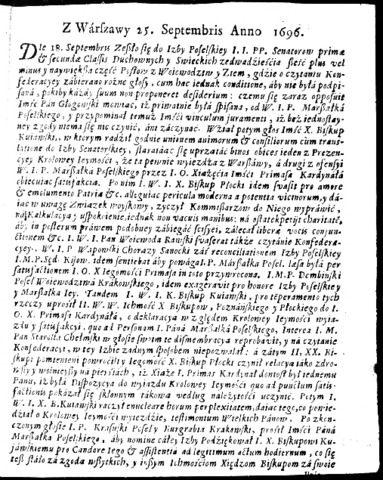 Z Wárszawy 25. Septembris Anno 1696.
Die 18. Septembris Zeszło się do Izby Poselskiey I. I. PP. Senatorow primæ
& secundæ Classis Duchownych y Swieckich zedwádzieśćia sześć plus vel
minus y naywiększa część Posłow z Woiewodztw y Ziem, gdzie o czytániu Kon-
federacyey zábierano rożne głosy, cum hac indeat conditione, aby nie była podpi-
sáná, pokiby káżdy suum non proponeret desiderium: czemu się záraz opposuit
Imśc Pan Głogowski mowiąc, iż primatnie byłá spisána, od W. I. P. Marszałká
Poselskiego, y przypominał temuż Imśći vinculum juramenti, iż bez iednostay-
ney zgody niema się nic czynić, áni záczynáć. Wziął potym głos Imśc X. Biskup
Kuiawski, w ktorym rádził gádnie unionem animorum & consiliorum cum trans-
latione do Izby Senatorskiey, y staráiąc się uprzątáć binos obices ieden z Prezen-
cyey Krolowey Ieymośći, że ta pewnie wyieżdza z Wárszáwy, á drugi z offensyi
W. I. P. Marszałká Poselskiego przez I. O. Xiążęćia Imśći Primasa Kárdynałá
obiecuiąc satisfactia. Po nim I. W. I. X. Biskup Płocki idem swaśit pro amore
& emolumento Patriæ &c. allegując pericula moderna á potentia vicinorum, y dá-
iąc w uwagę Zwiążek woyskowy, życzył Kommissarzow do Niego wypráwić,
ná kálkulacyą y uspokoienie, iednák non vacuis manibus: ná ostátek petiit charitatē,
aby in posterum práwem podobney zábiegáć scissyi, zálecáł liberā vocis conjun-
ctionem &c. I. W. I. Pan Woiewoda Rawski swáserat tákże czytánie Konfedera-
cyey. W. I. P. Wąpowski Chorąży Sanocki zaś reconciliationem Izby Poselskiey
I. M. P. Sęd. Kijow. idem sentiebat áby pomágał. P. Miaska Posel. lasa była per
satisfactionem I. O. X iegomośći Primasa in toto przywrocona. I. M. P. Dembinski
Poseł Woiewodztwá Krákowskiego, idem exageravit pro honore Izby Poselskiey
y Marszałká Iey. Tandem I. W. I. K. Biskup Kuiáwski, pro temperamento tych
rzeczy uprosił I. W. W. Ichmość X Biskupow, Poznáńskiego y Płockiego do I.
O. X. Primasa Kárdynałá, o deklaracyą w z ględem Krolowey Ieymośći wyia-
zdu y satysfakcyi, quo ad Personam I. Páná Marszałká Poselskiego, Interea I. M.
Pan Starosta Chełmski w głośie swoim te dismembracyą reprobavit, y ná czytánie
Konfederacyi, w tey Izbie żádnym sposobem niepozwáláł: á zátym II. XX. Bi-
skupi pomienieni powroćili y Iegomość X Biskup Płocki czynił relacyą iáko zdro-
wszy y wśmielszy ná pierśiách, iż Xiążę I. Primas Kárdynał doniosł był iednemu
Pánu, iż byłá Dyspozycya do wyiazdu Krolowey Ieymośći quo ad punctum satis-
factionis pokazał się skłonnym tákową według należytośći uczynić. Potym I.
W. I. X. B. Kuiáwski ráczył enucleare horum perplexitatem, dáiąc tego, co powie-
dział o Krolowey Ieymośći wyieżdzie, testimonium Wielkich Pánow. Po zkoń-
czonym głośie I. P. Krasiński Poseł y Burgrábia Krákowski, prośił Imśći Páná
Marszałká Poselskiego, áby nomine całey Izby Podżiękował I. X. Biskupowi Ku-
jáwskiemu pro Candore lego & assistentia ad legitimum actum hodiernum, co się
też stało zá zgodą wszytkich, y inszym Ichmośćiom Xiędzom Biskupom zá swoie